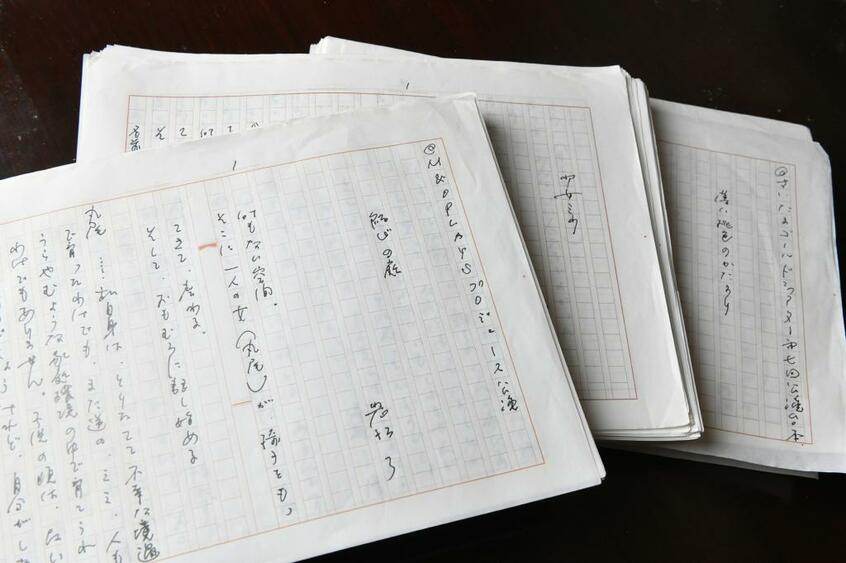 1
◎M&OPLAYSプロデュース公演
結びの庭
岩松了
何もない空間。
そこに一人の女(丸尾)が、椅子をも
ってきて、座わる。
そして、おもむろに話し始める
丸尾 ……私自身は、とりたてて不幸な境遇
で育ったわけでも、また逆の、……人も
うらやむような家庭環境の中で育てられ
わけでもありません。子供の頃は、
けれど、自分がし
1
少女ミウ
◎さいたまゴールド・シアター第七回公演台本
薄い桃色のかたまり